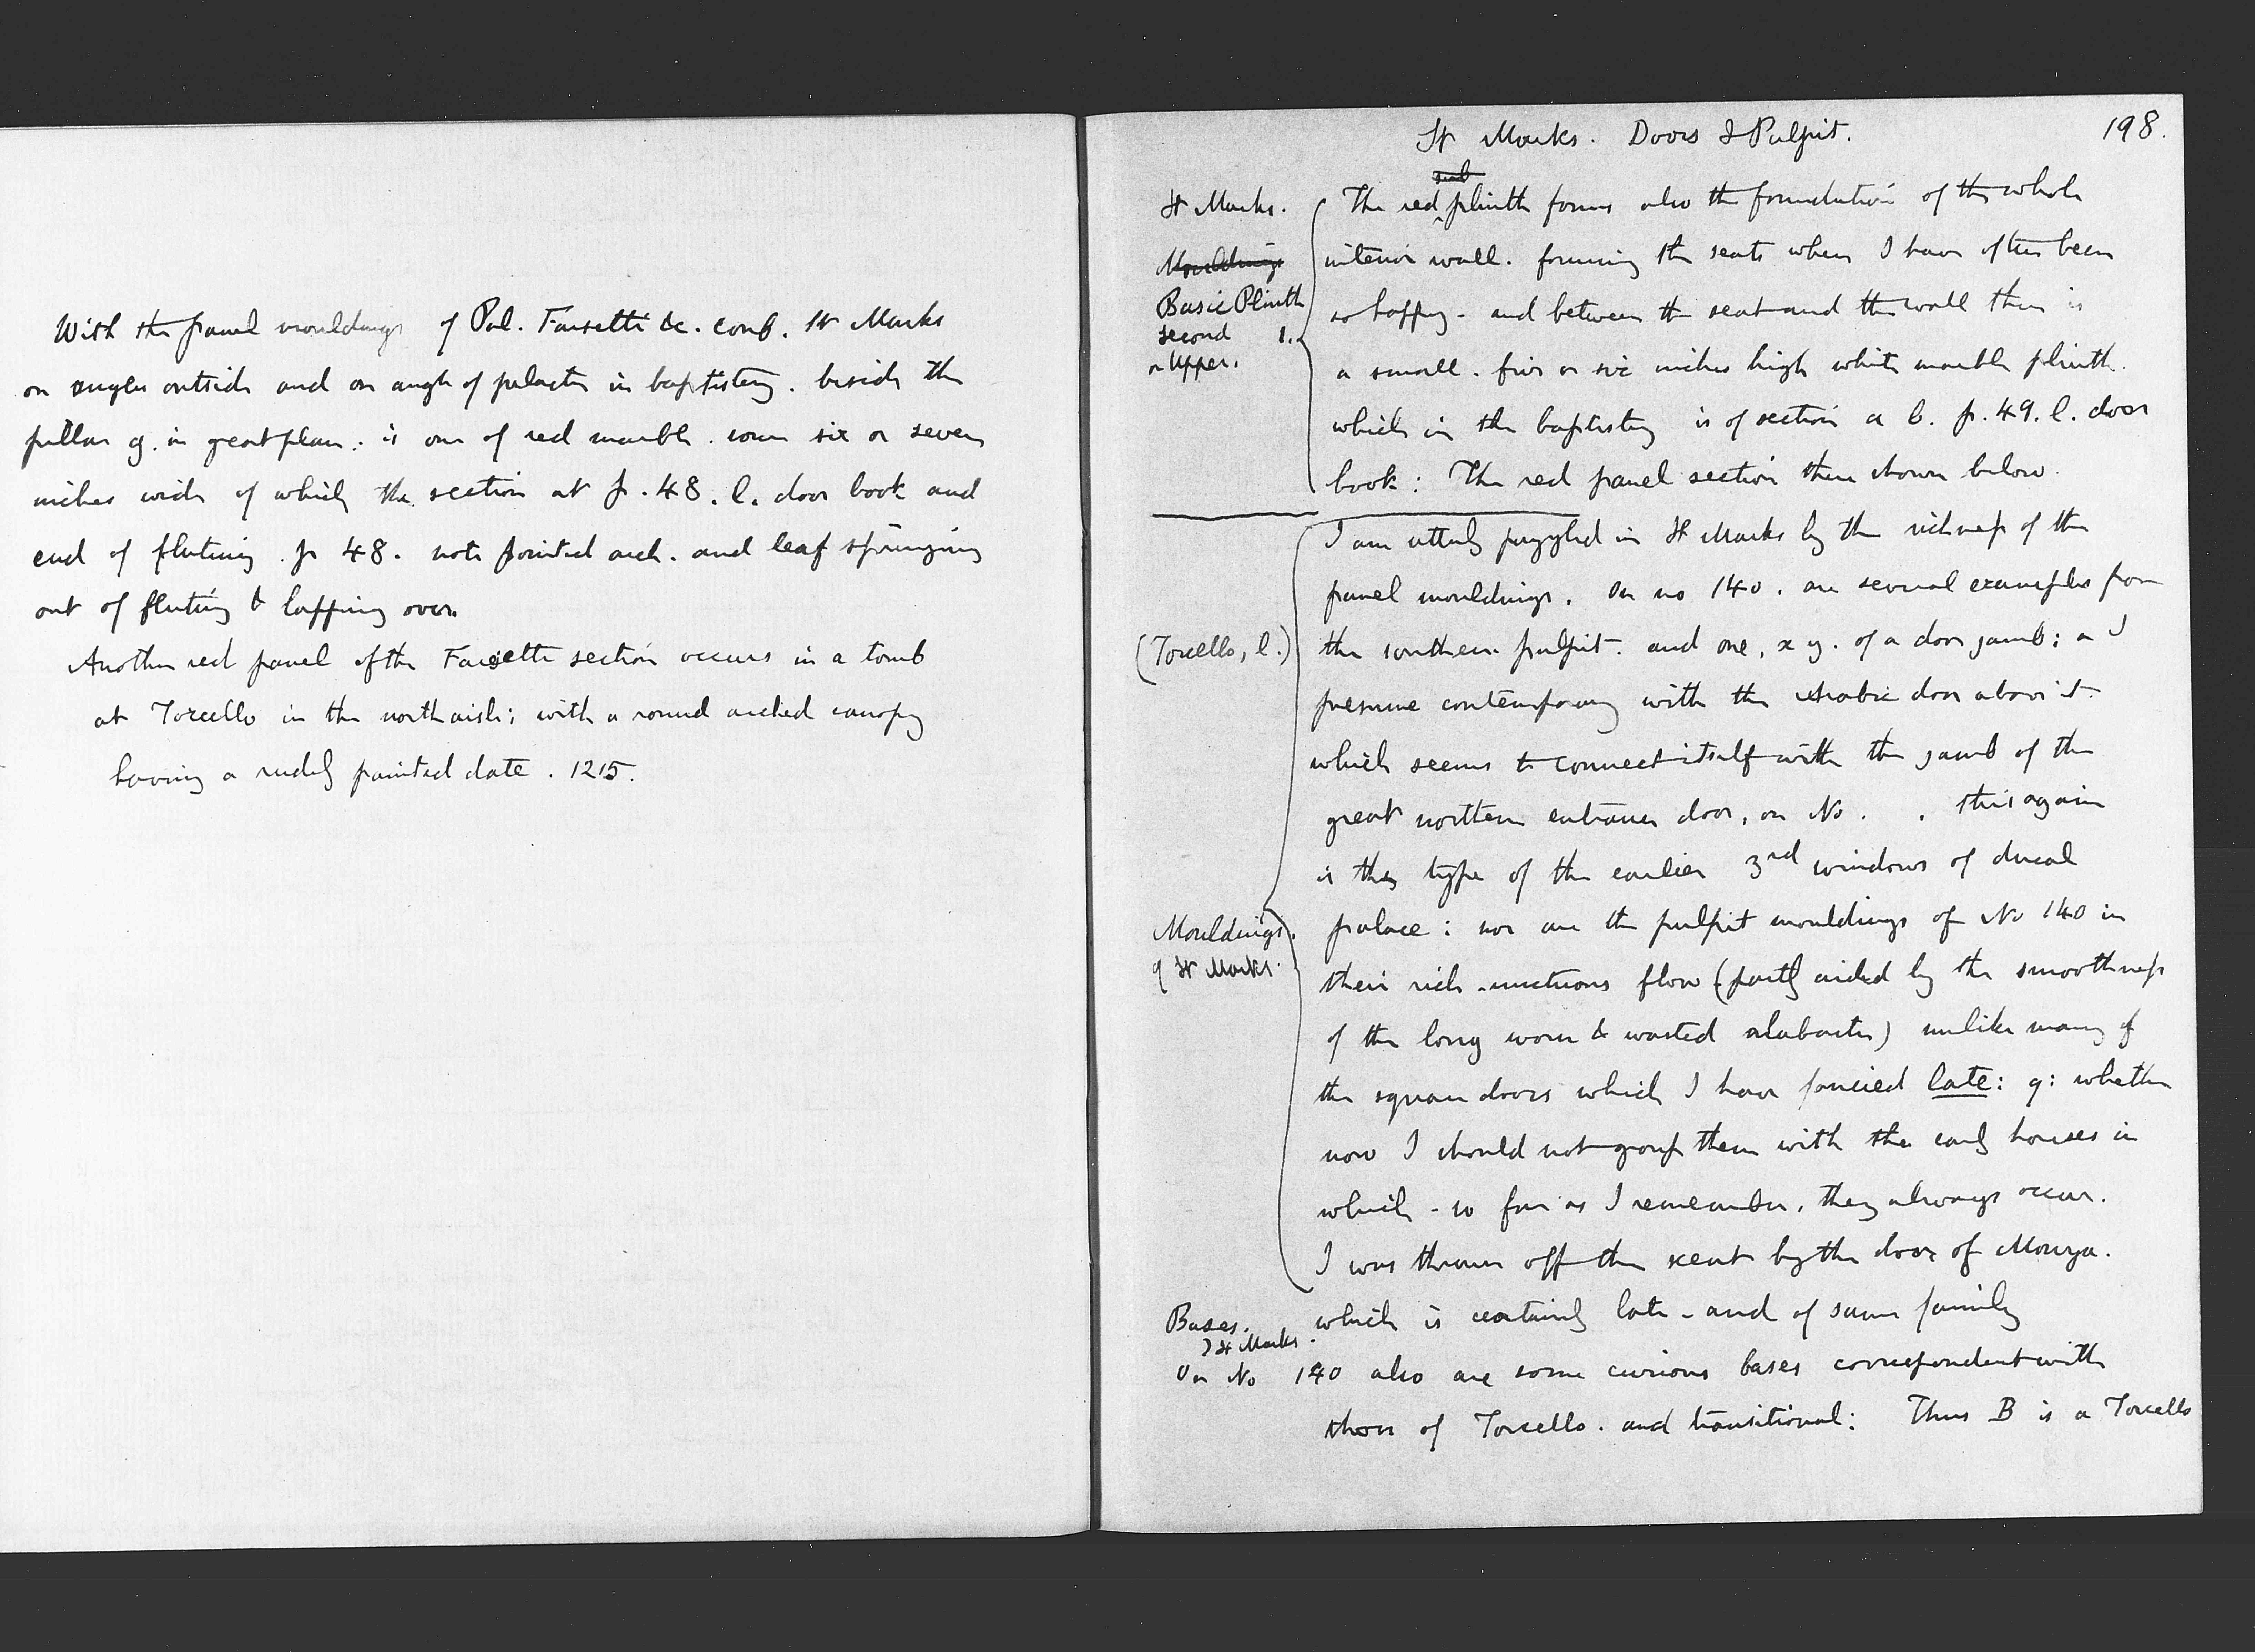 With the panel mouldings of Pal. Farsetti &c. comb. St Marks
on angles outside and on angle of pilaster in baptistery. beside the
pillar g. in great plan: is one of red marble. some six or seven
inches wide of which the section at p. 48. l. door book and
end of fluting p 48. note pointed arch. and leaf springing
out of fluting & lapping over.
Another red panel of the Farsetti section occurs in a tomb
at Torcello in the north aisle; with a round arched canopy
having a rudely painted date. 1215.
St Marks. Doors & Pulpit.
198.
St Marks.
Mouldings
Basic Plinth
second 1.
or Upper.
sub
The red plinth forms also the foundation of the whole
interior wall. forming the seats where I have often been
so happy - and between the seat and the wall there is
a small. five or six inches high white marble plinth.
which in the baptistery is of section a b. p. 49. l. door
book: The red panel section there shown below.
(Torcello, l.)
I am utterly puzzled in St Marks by the richness of the
panel mouldings. On no 140. are several examples from
the southern pulpit. and one, x y. of a door jamb; a I
presume contemporary with the Arabic door above it.
which seems to connect itself with the jamb of the
great northern entrance door, on No . . this again
is the type of the earlier 3rd windows of ducal
Mouldings.
of St Marks.
palace: nor are the pulpit mouldings of No 140 in
their rich unctuous flow (partly aided by the smoothness
of the long worn & wasted alabaster) unlike many of
the square doors which I have fancied late: q: whether
now I should not group them with the early houses in
which - so far as I remember, they always occur.
I was thrown off the scent by the door of Monza.
which is certainly late - and of same family
Bases.
St Marks.
On No 140 also are some curious bases correspondent with
those of Torcello. and transitional: Thus B is a Torcello